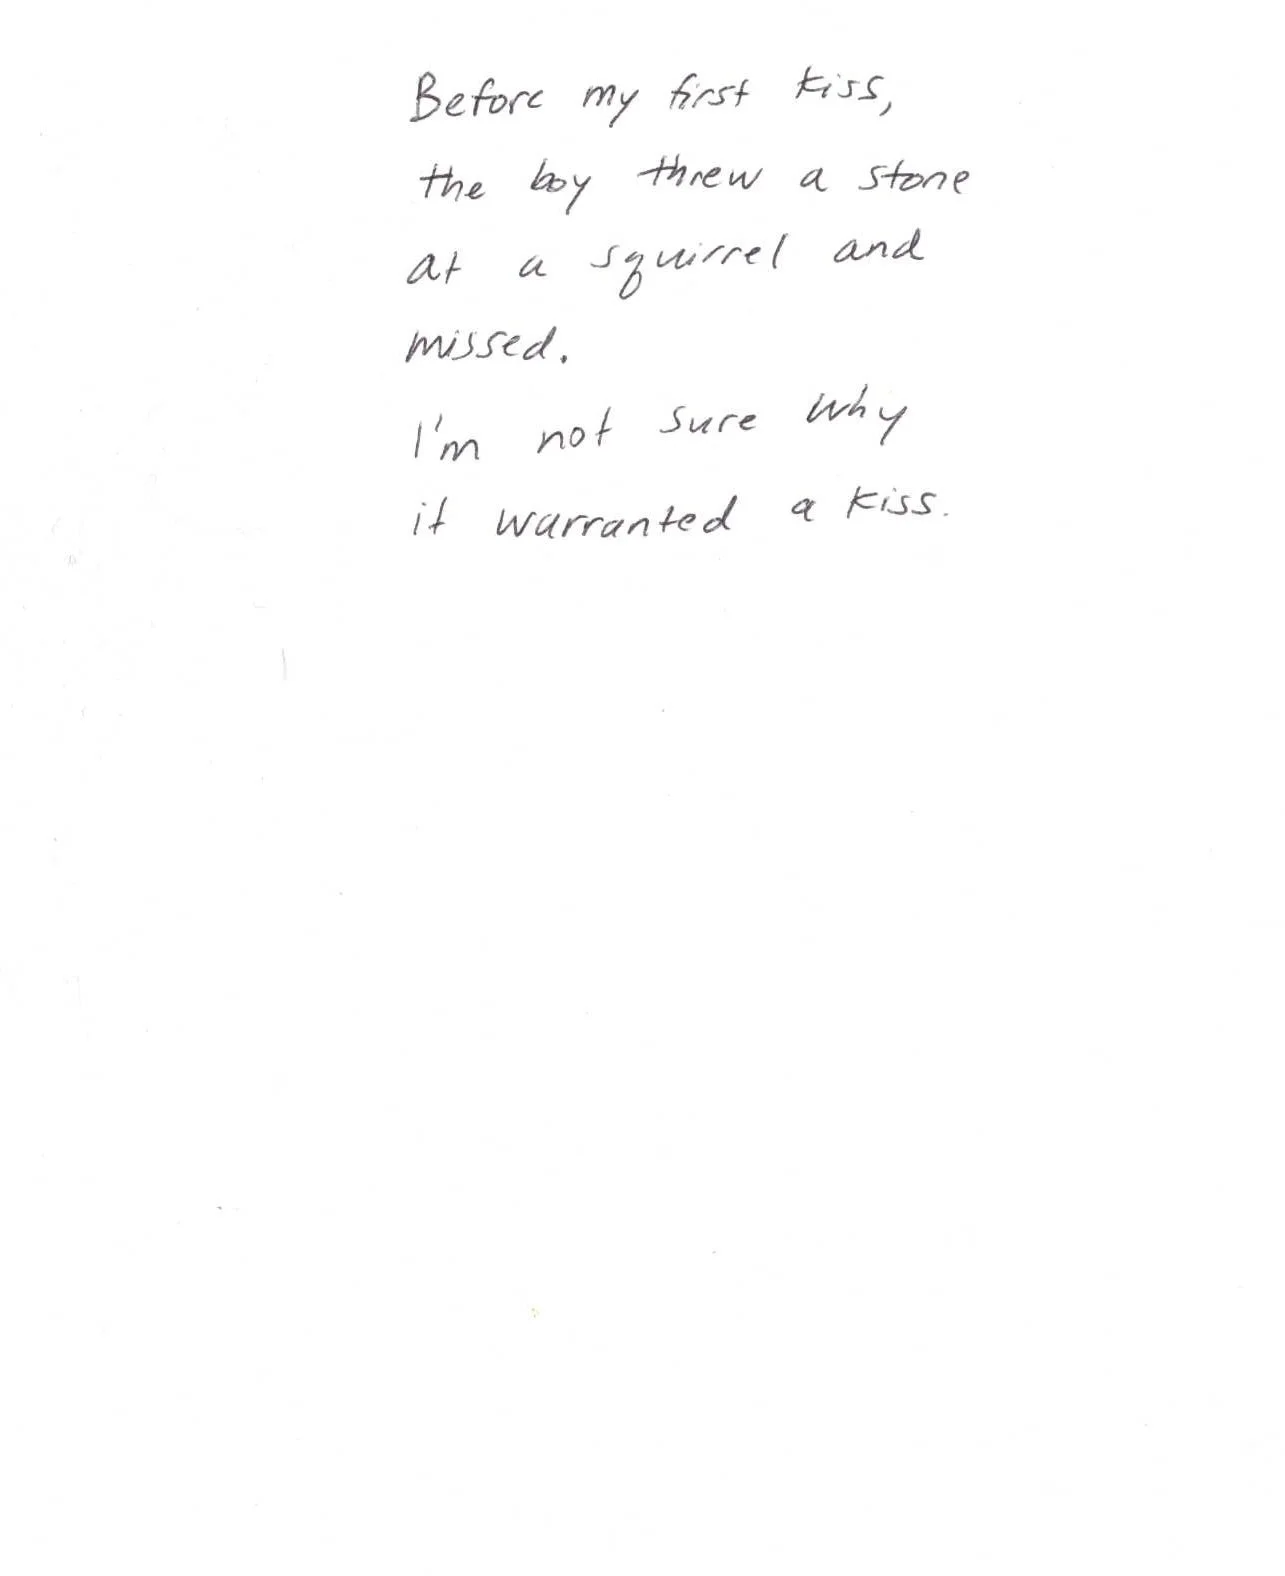 Before my first kiss,
the boy threw a stone
at a squirrel and
missed.
I'm not sure why
it warranted a kiss.